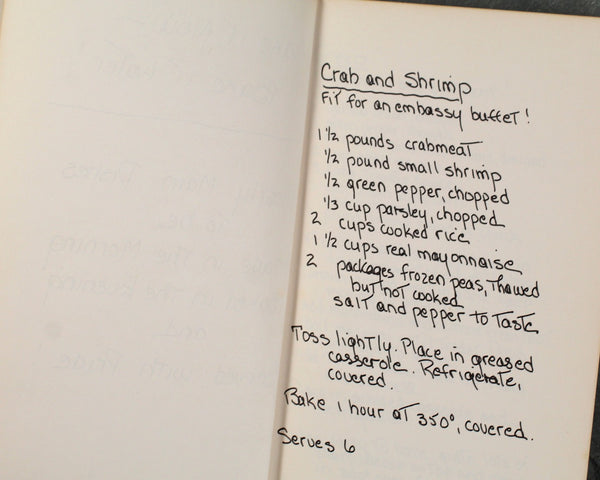 Crab and Shrimp
Fit for an embassy buffet!
1 1/2 pounds crabmeat
1/2 pound small shrimp
1/2 green pepper, chopped
1/3 cup parsley, chopped
2 cups cooked rice
1 1/2 cups real mayonnaise
2 packages frozen peas, thawed
but not cooked
salt and pepper to taste
Toss lightly. Place in greased
casserole. Refrigerate,
covered.
Bake 1 hour at 350°, covered.
Serves 6